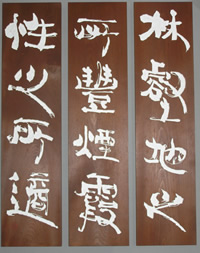 林壑地之
所豐煙霞
性之所適